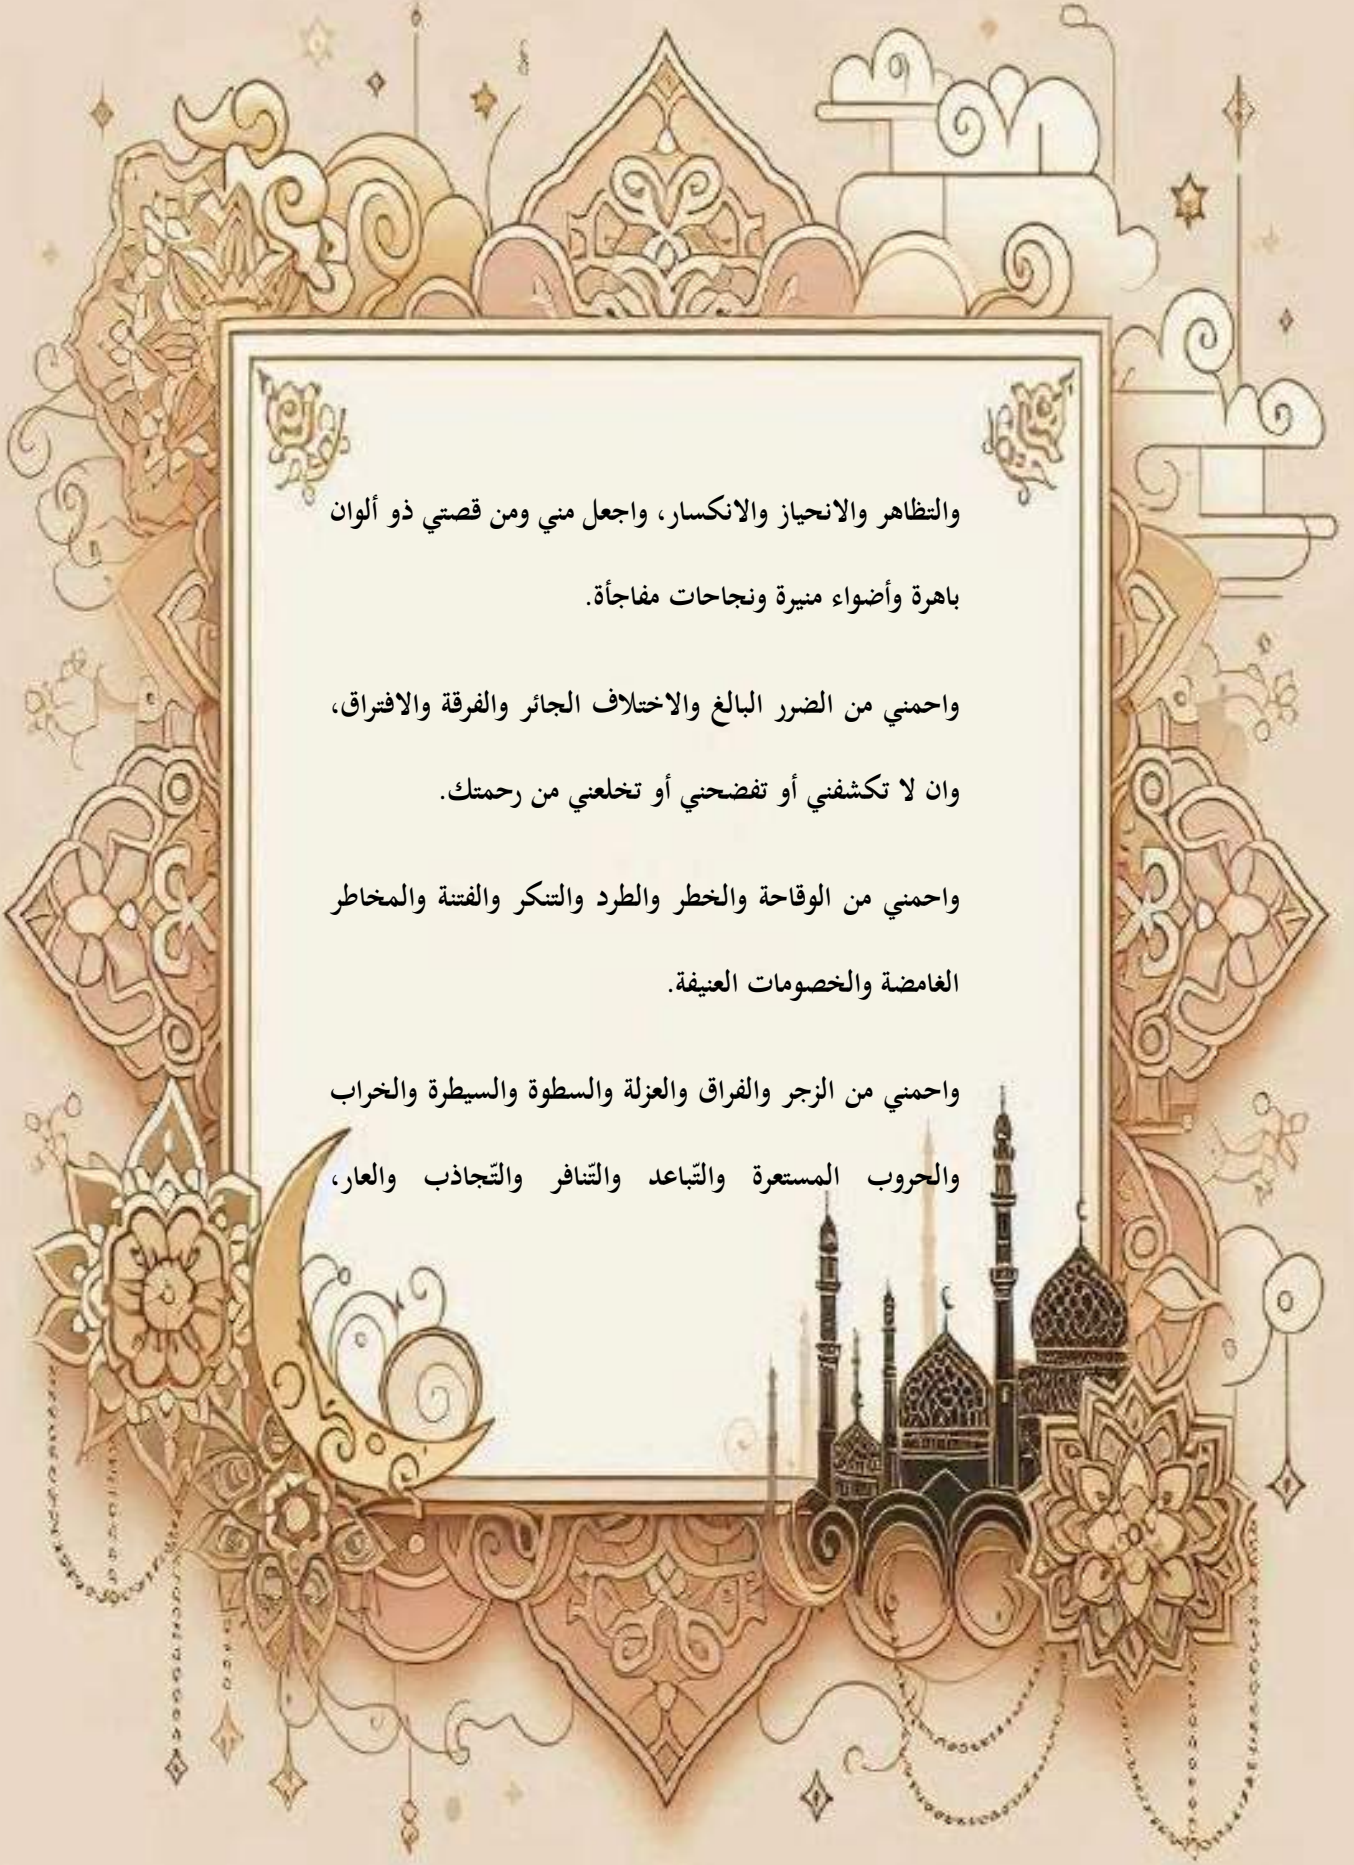 والتظاهر والانحياز والانكسار، واجعل مني ومن قصتي ذو ألوان
باهرة وأضواء منيرة ونجاحات مفاجأة.
واحمني من الضرر البالغ والاختلاف الجائر والفرقة والافتراق،
وان لا تكشفني أو تفضحني أو تخلعني من رحمتك.
واحمني من الوقاحة والخطر والطرد والتنكر والفتنة والمخاطر
الغامضة والخصومات العنيفة.
واحمني من الزجر والفراق والعزلة والسطوة والسيطرة والخراب
والحروب المستعرة والتّباعد والتّنافر والتّجاذب والعار،